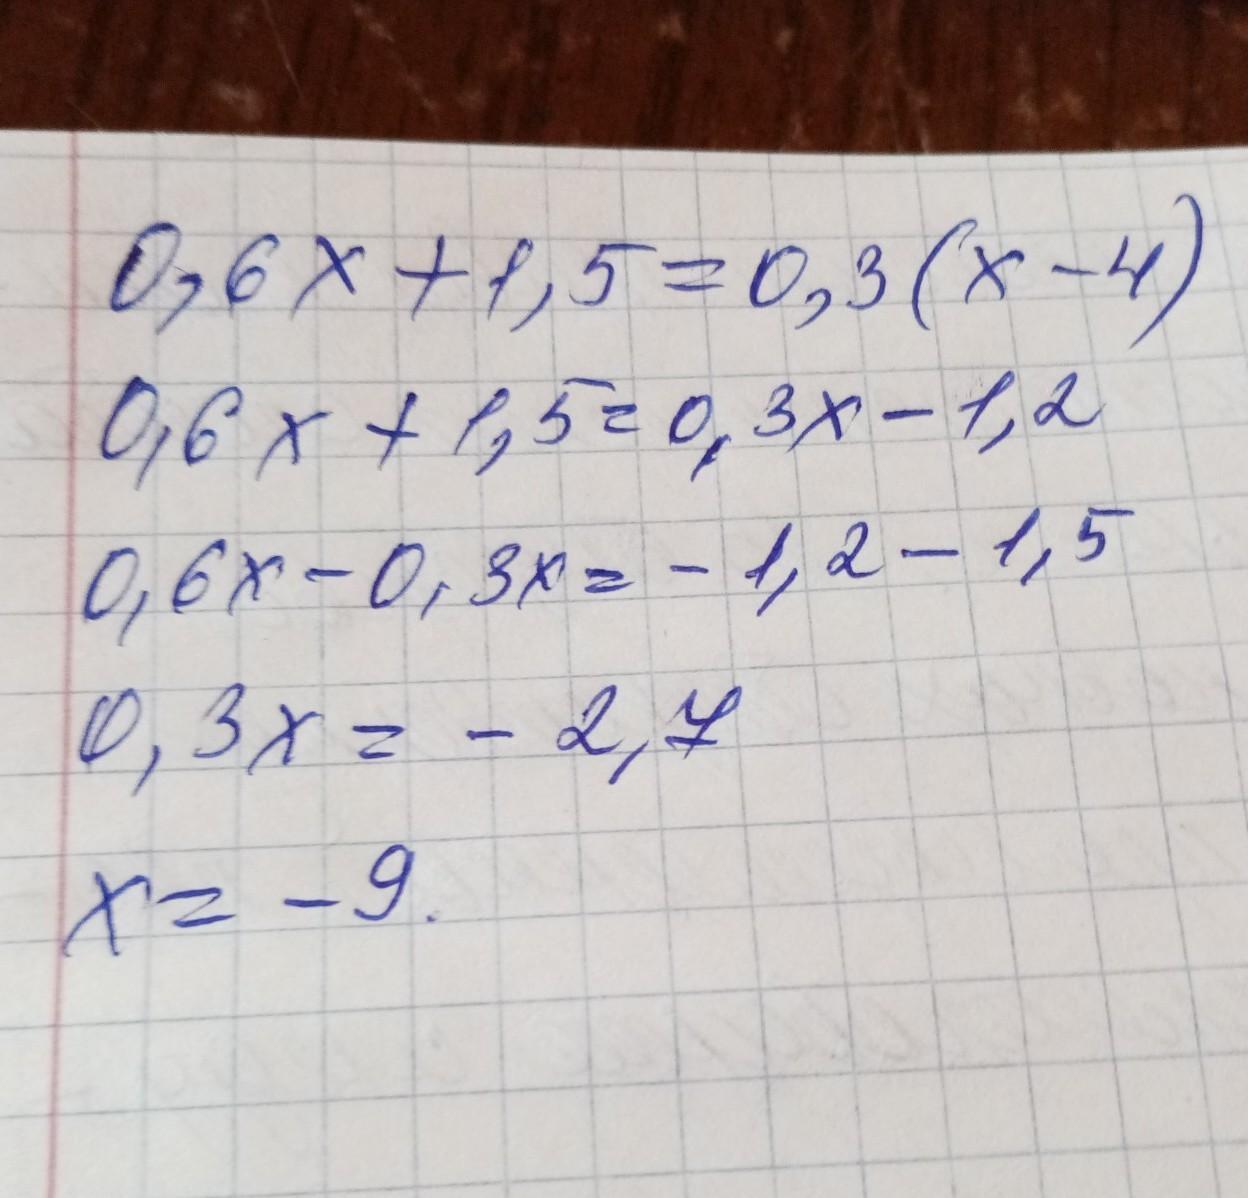 0,6x+1,5=0,3(x-4)
0,6x+1,5=0,3x-1,2
0,6x-0,3x=-1,2-1,5
0,3x=-2,7
x=-9.